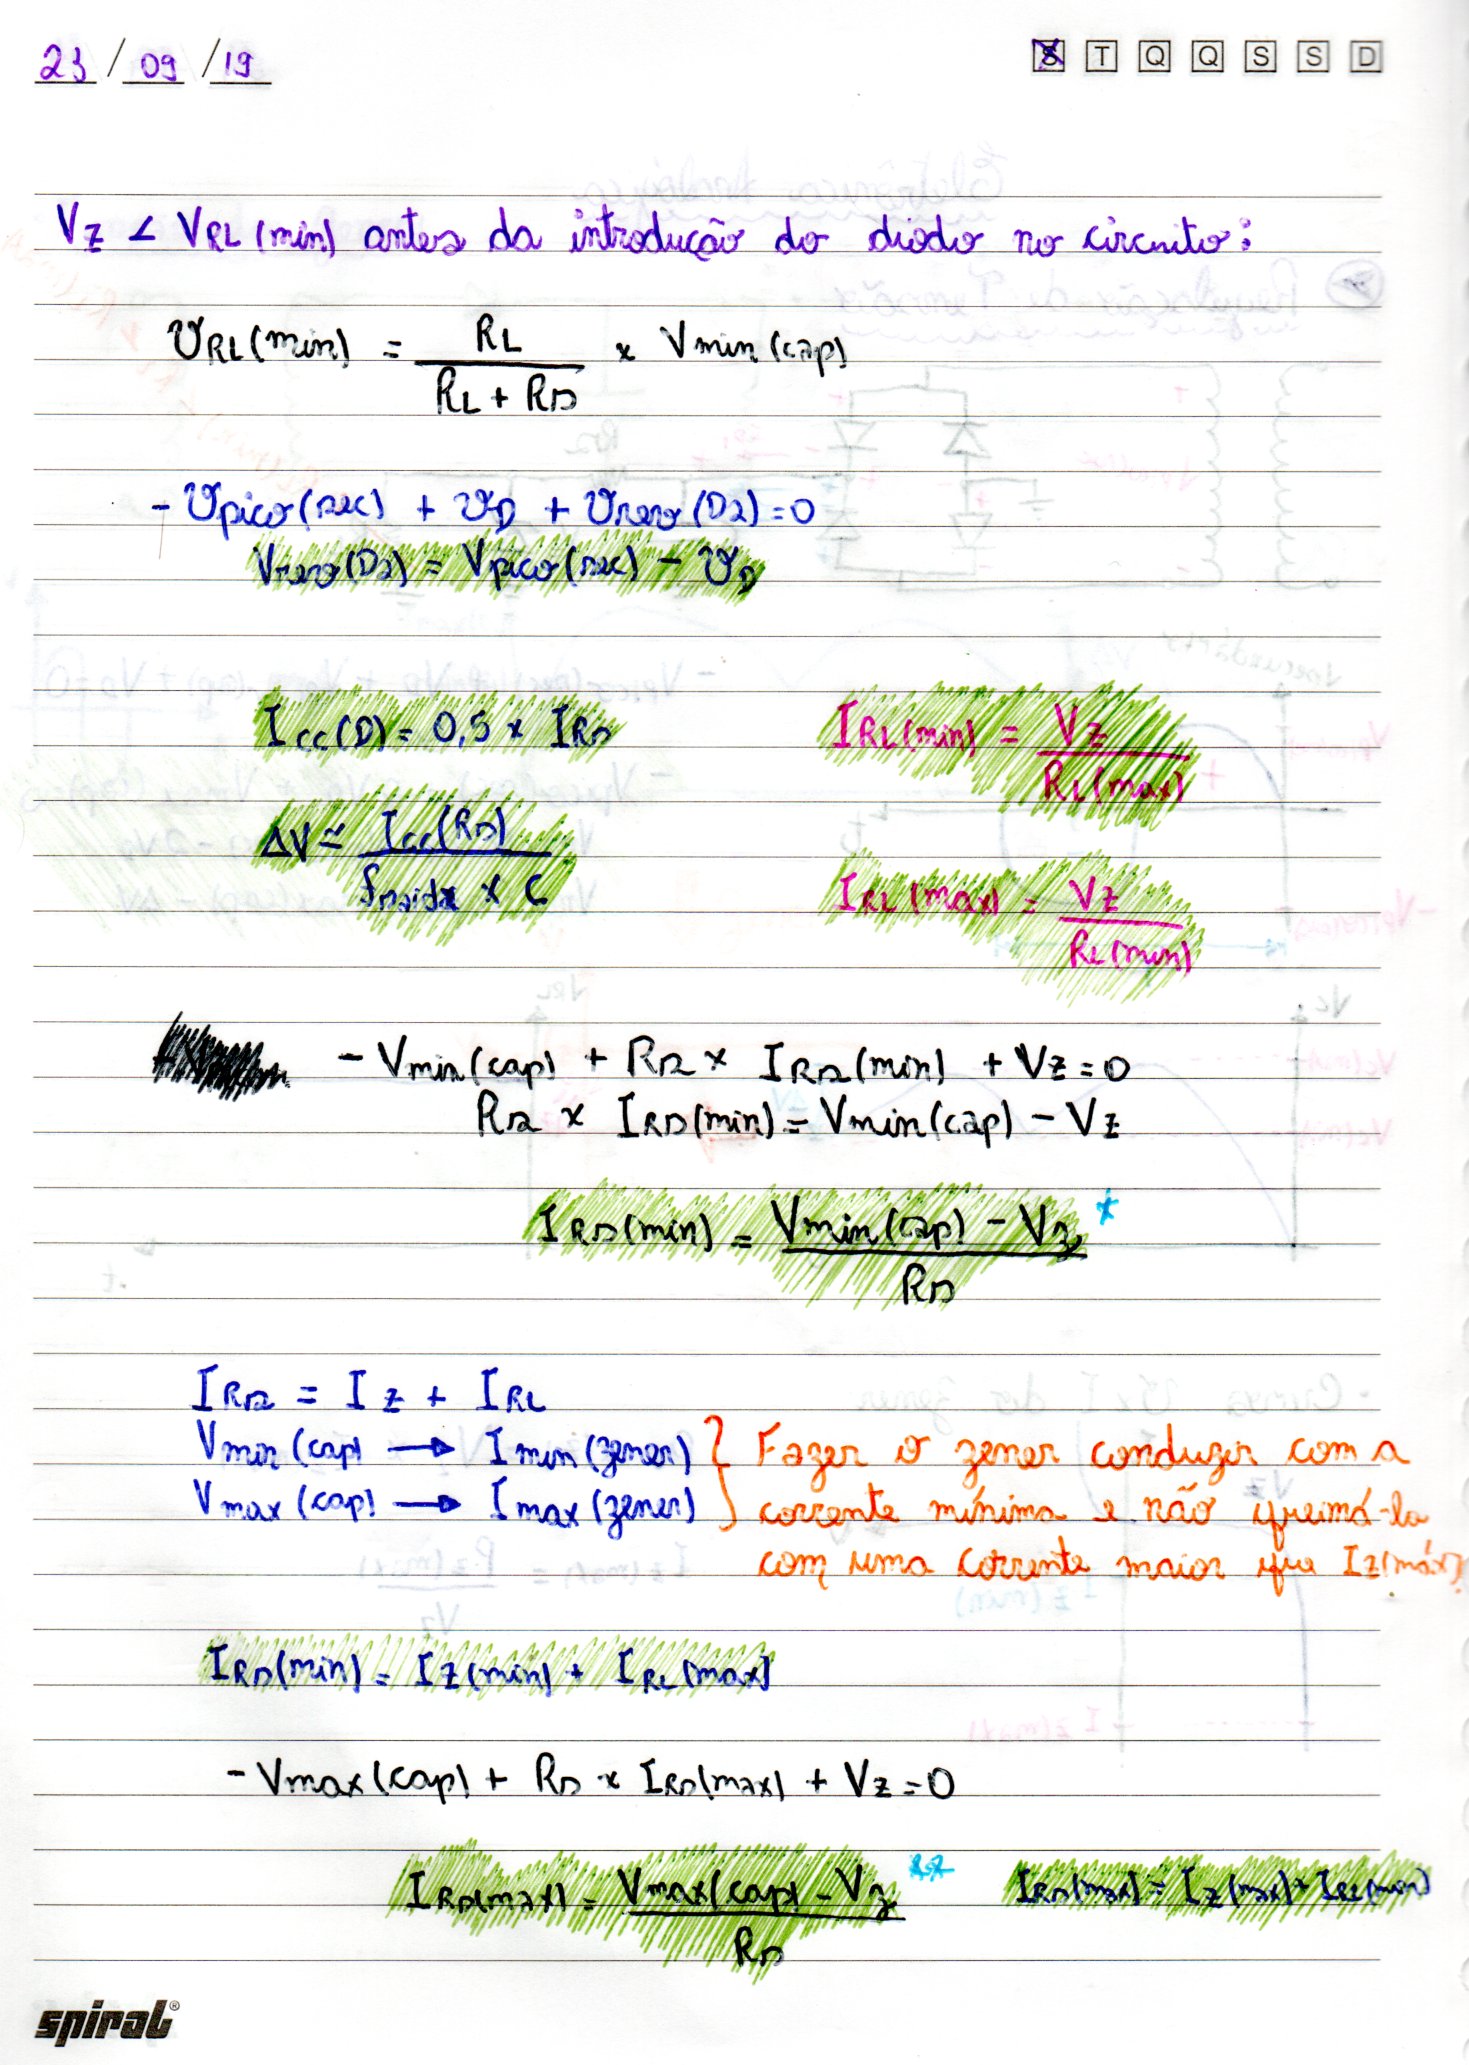 23 / 09 / 19
S T Q Q S S D
Vz < VRL (min) antes da introdução do diodo no circuito:
VRL (min) = RL / (RL + Rs) × Vmin (cap)
- Vpico (sec) + VD + Vrevo (D2) = 0
Vrevo (D2) = Vpico (sec) - VD
Icc (D) = 0,5 × IRs
IRL (min) = Vz / RL (max)
ΔV ≃ Icc (Rs) / (fsaída × C)
IRL (max) = Vz / RL (min)
- Vmin (cap) + Rs × IRs (min) + Vz = 0
Rs × IRs (min) = Vmin (cap) - Vz
IRs (min) = (Vmin (cap) - Vz) / Rs *
IRs = Iz + IRL
Vmin (cap) → Imin (zener) } Fazer o zener conduzir com a
Vmax (cap) → Imax (zener) } corrente mínima e não queimá-lo
com uma corrente maior que Iz (máx)
IRs (min) = Iz (min) + IRL (max)
- Vmax (cap) + Rs × IRs (max) + Vz = 0
IRs (max) = (Vmax (cap) - Vz) / Rs **
IRs (max) = Iz (max) + IRL (min)
spiral®